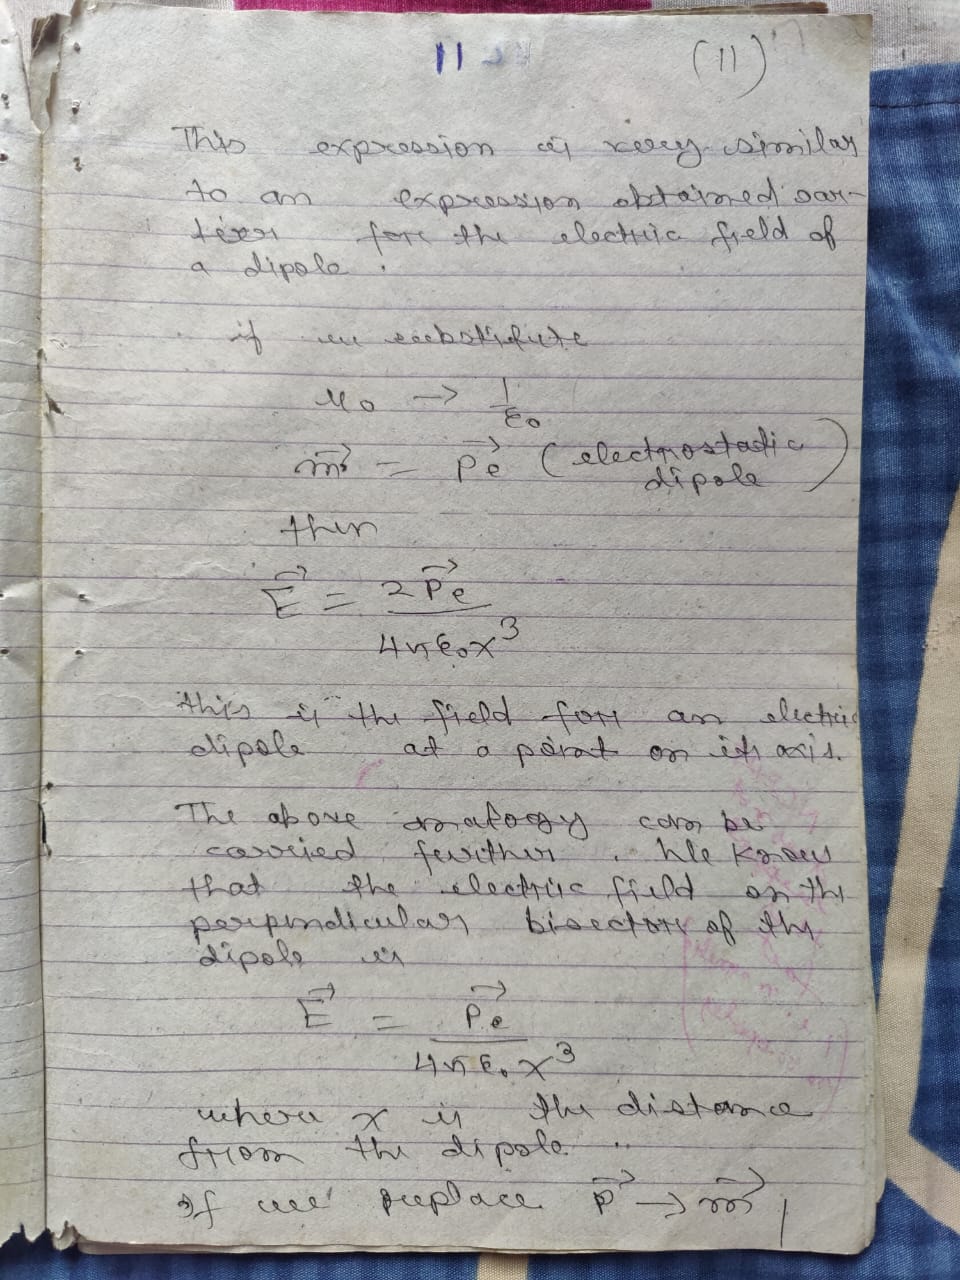 11
(11)
This expression is very similar
to an expression obtained ear-
lier for the electric field of
a dipole.
if we substitute
μ0 → 1/ε0
m⃗ = p⃗e (electrostatic
dipole)
then
E⃗ = 2p⃗e / 4πε0x³
this is the field for an electric
dipole at a point on its axis.
The above analogy can be
carried further. We know
that the electric field on the
perpendicular bisector of the
dipole is
E⃗ = p⃗e / 4πε0x³
where x is the distance
from the dipole.
If we replace p⃗ → m⃗,